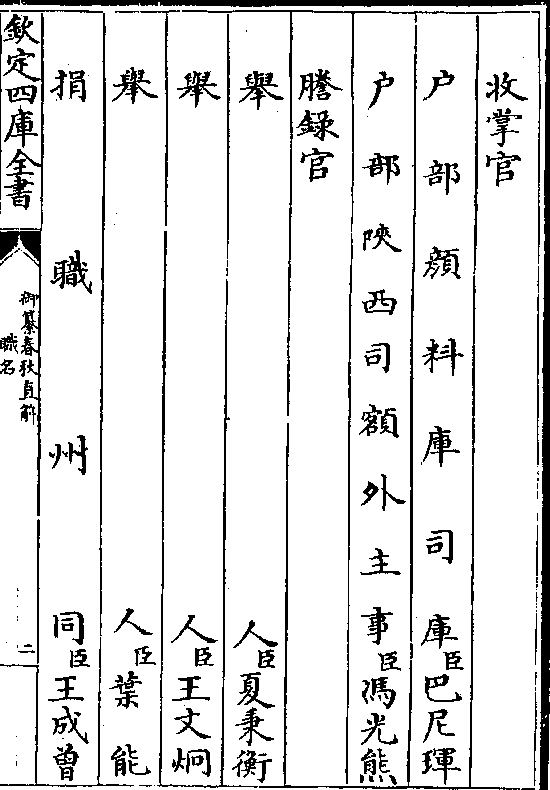 收掌官
户部顔料庫司庫臣巴尼琿
户部陝西司額外主事臣馮光熊
謄錄官
舉人臣夏秉衡
舉人臣王文炯
舉人臣葉能
捐職州同臣王成曾
欽定四庫全書
御纂春秋直解
職名
二